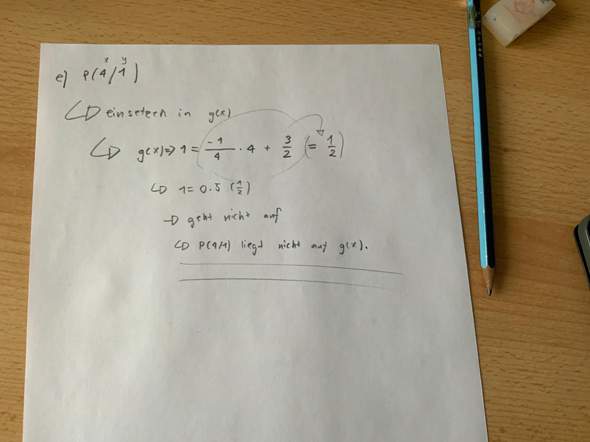 x y
e) P(4/1)
einsetzen in g(x)
g(x) => 1 = -1/4 · 4 + 3/2 (= 1/2)
1 = 0.5 (1/2)
→ geht nicht auf
P(4/1) liegt nicht auf g(x).